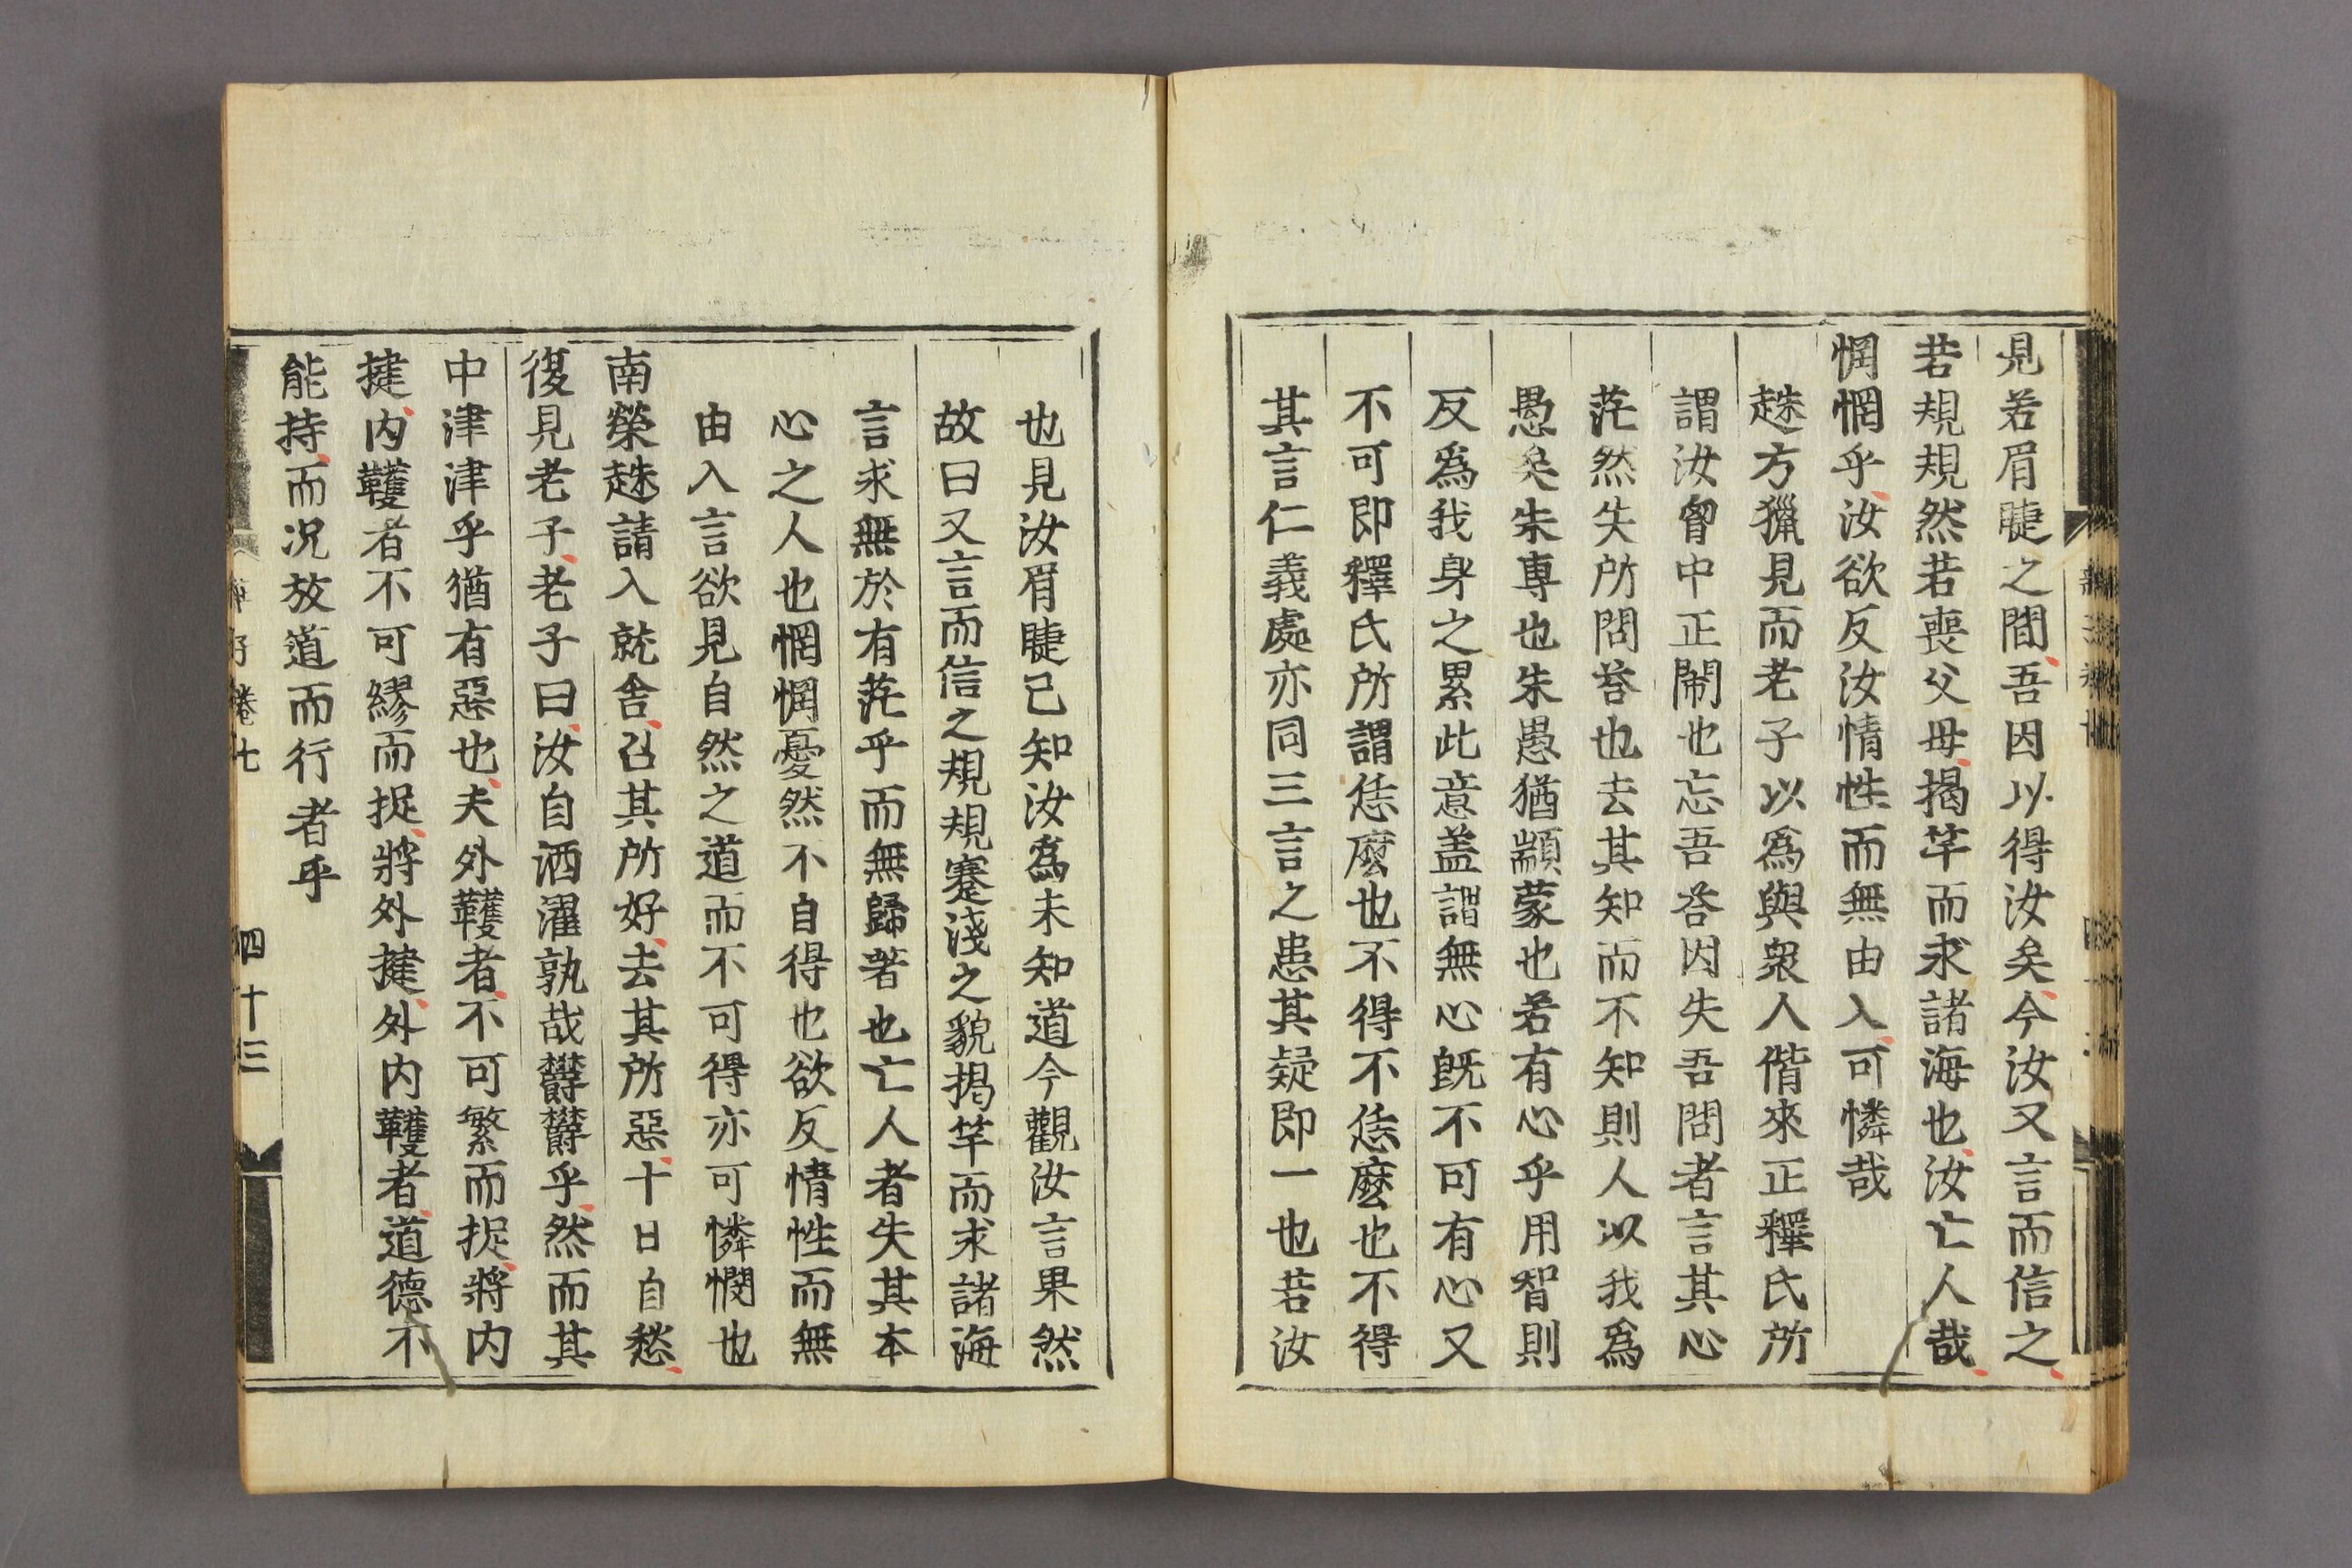 見若眉睫之間吾因以得汝矣今汝又言而信之
若規規然若喪父母揭竿而求諸海也汝亡人哉
惘惘乎汝欲反汝情性而無由入可憐哉
趎方獵見而老子以爲與衆人偕來正釋氏所
謂汝胷中正閙也忘吾答因失吾問者言其心
茫然失所問荅也去其知而不知則人以我爲
愚矣朱專也朱愚猶顓蒙也若有心乎用智則
反爲我身之累此意盖謂無心旣不可有心又
不可即釋氏所謂恁麼也不得不恁麼也不得
其言仁義處亦同三言之患其疑即一也若汝
也見汝眉睫已知汝爲未知道今觀汝言果然
故曰又言而信之規規蹇淺之貌揭竿而求諸海
言求無於有茫乎而無歸著也亡人者失其本
心之人也惘惘憂然不自得也欲反情性而無
由入言欲見自然之道而不可得亦可憐憫也
南榮趎請入就舍召其所好去其所惡十日自愁
復見老子老子曰汝自洒濯孰哉欝欝乎然而其
中津津乎猶有惡也夫外韄者不可繁而捉將内
揵内韄者不可繆而捉將外揵外内韄者道德不
能持而况放道而行者乎
卷七
四十三